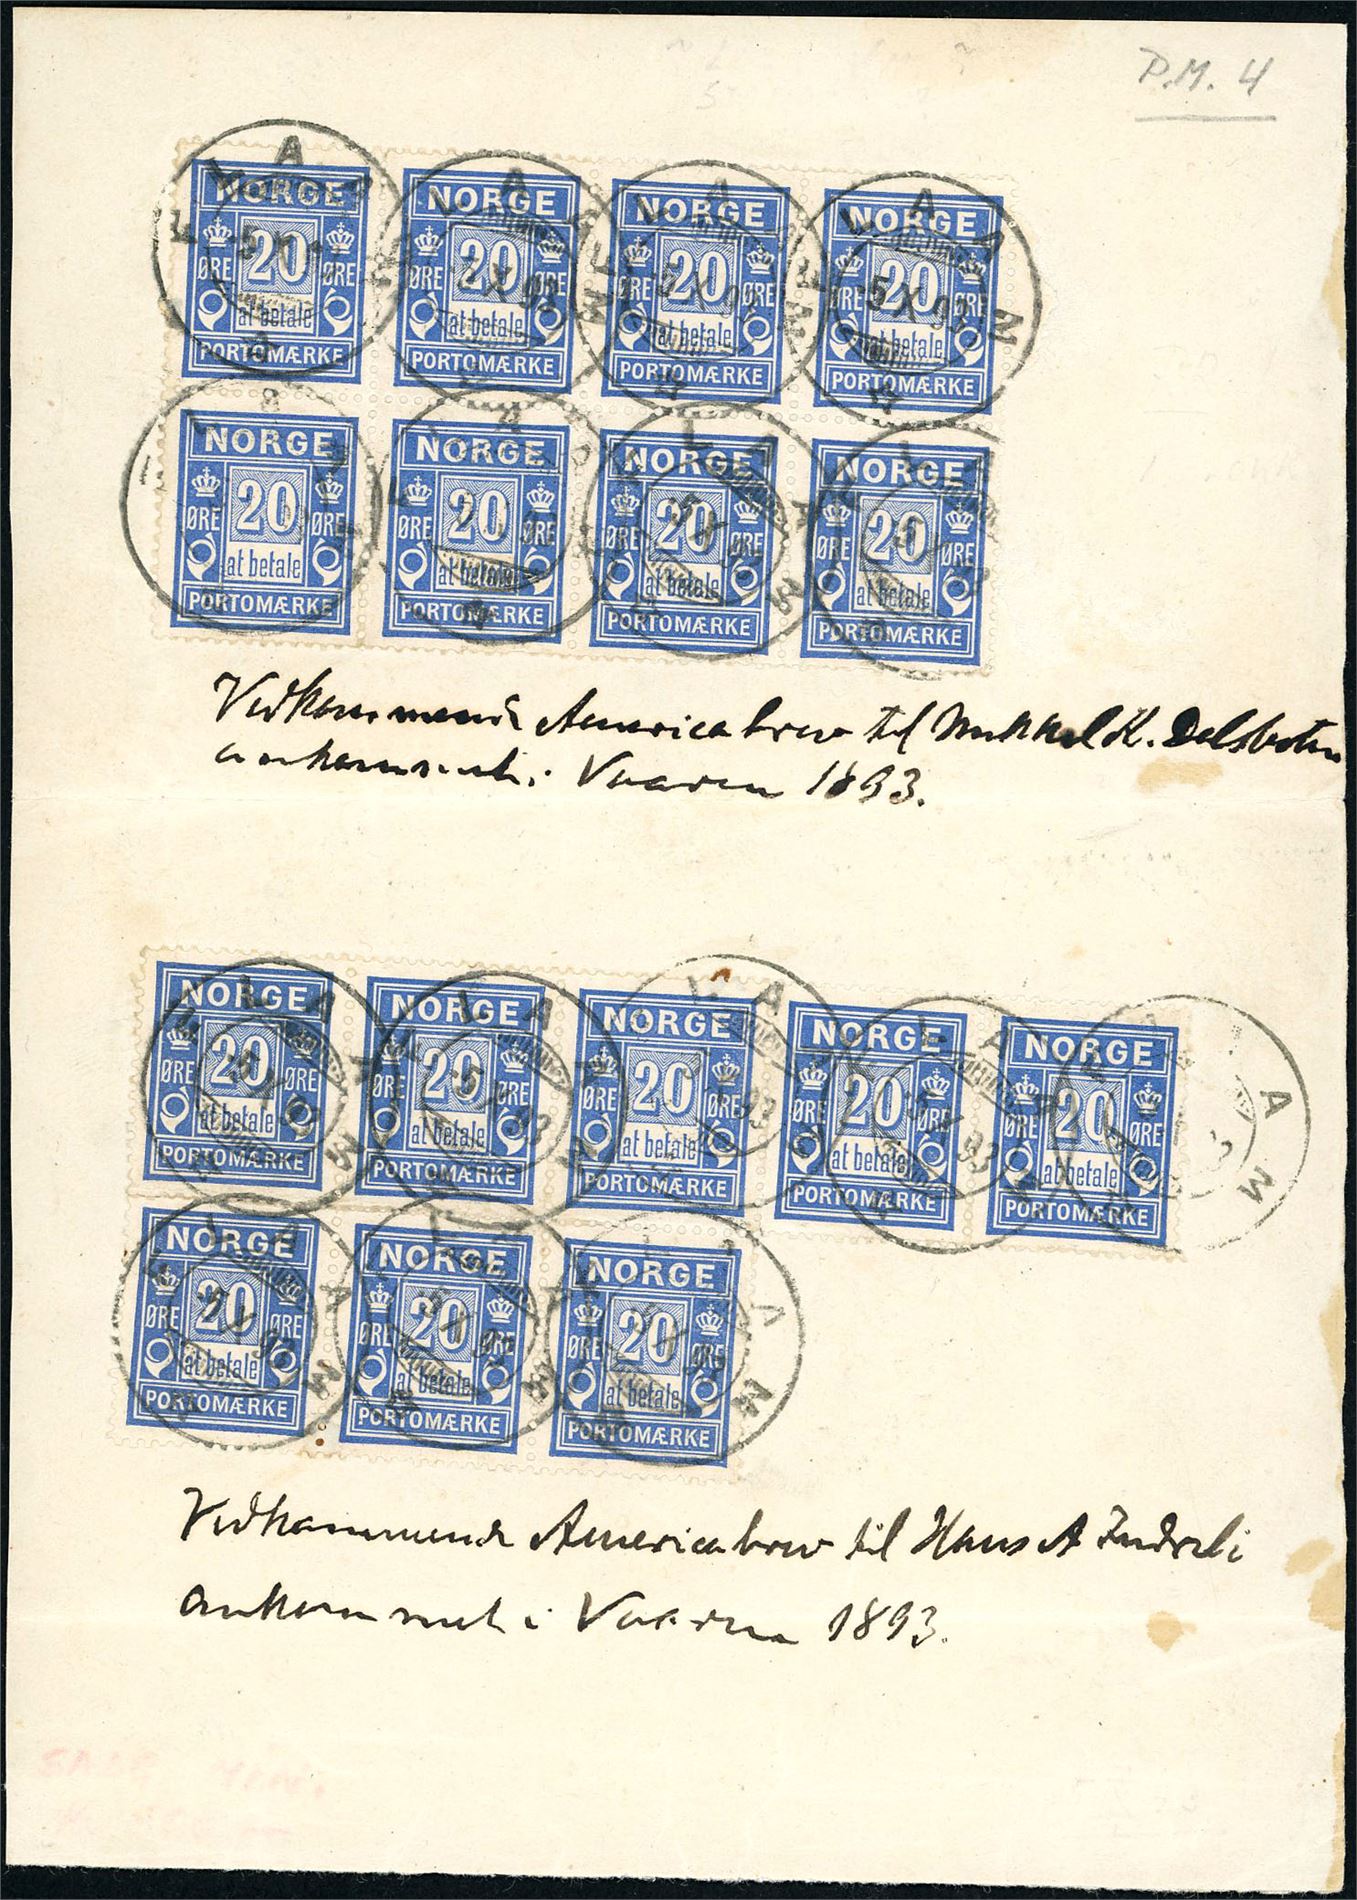 P.M. 4
NORGE NORGE NORGE NORGE
20 20 20 20
ØRE ØRE ØRE ØRE ØRE ØRE ØRE
at betale at betale at betale at betale
PORTOMÆRKE PORTOMÆRKE PORTOMÆRKE PORTOMÆRKE
NORGE NORGE NORGE NORGE
20 20 20 20
ØRE ØRE ØRE ØRE ØRE ØRE ØRE ØRE
at betale at betale at betale at betale
PORTOMÆRKE PORTOMÆRKE PORTOMÆRKE PORTOMÆRKE
Vedkommende Americabrev til Mikkel K. Dalsbotn
ankommet i Vaaren 1893.
NORGE NORGE NORGE NORGE NORGE
20 20 20 20 20
ØRE ØRE ØRE ØRE ØRE ØRE ØRE ØRE ØRE ØRE
at betale at betale at betale at betale at betale
PORTOMÆRKE PORTOMÆRKE PORTOMÆRKE PORTOMÆRKE PORTOMÆRKE
NORGE NORGE NORGE
20 20 20
ØRE ØRE ØRE ØRE ØRE ØRE
at betale at betale at betale
PORTOMÆRKE PORTOMÆRKE PORTOMÆRKE
Vedkommende Americabrev til Hans A Indreli
ankommet i Vaaren 1893.